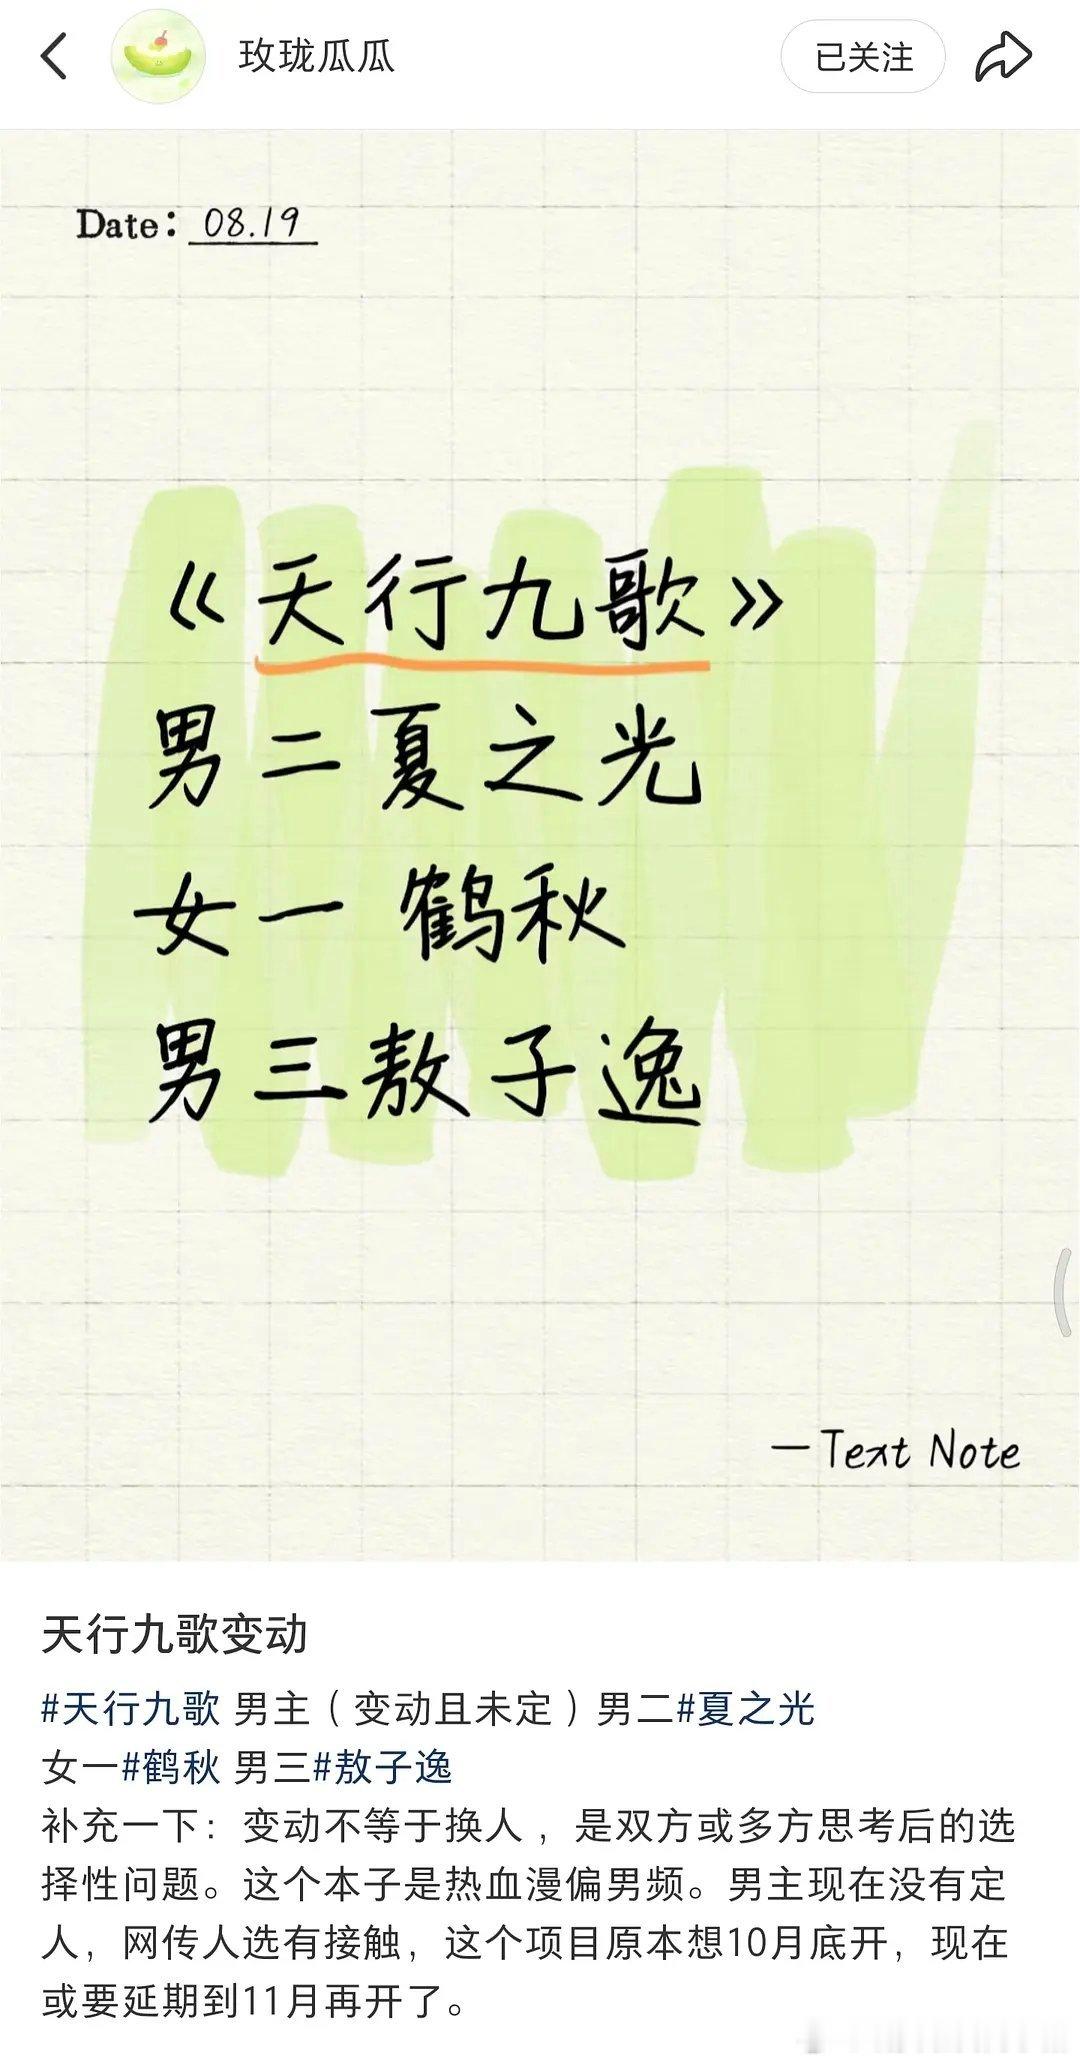 玫珑瓜瓜
已关注
Date: 08.19
《天行九歌》
男二夏之光
女一 鹤秋
男三敖子逸
—Text Note
天行九歌变动
#天行九歌 男主（变动且未定）男二#夏之光
女一#鹤秋 男三#敖子逸
补充一下：变动不等于换人，是双方或多方思考后的选
择性问题。这个本子是热血漫偏男频。男主现在没有定
人，网传人选有接触，这个项目原本想10月底开，现在
或要延期到11月再开了。